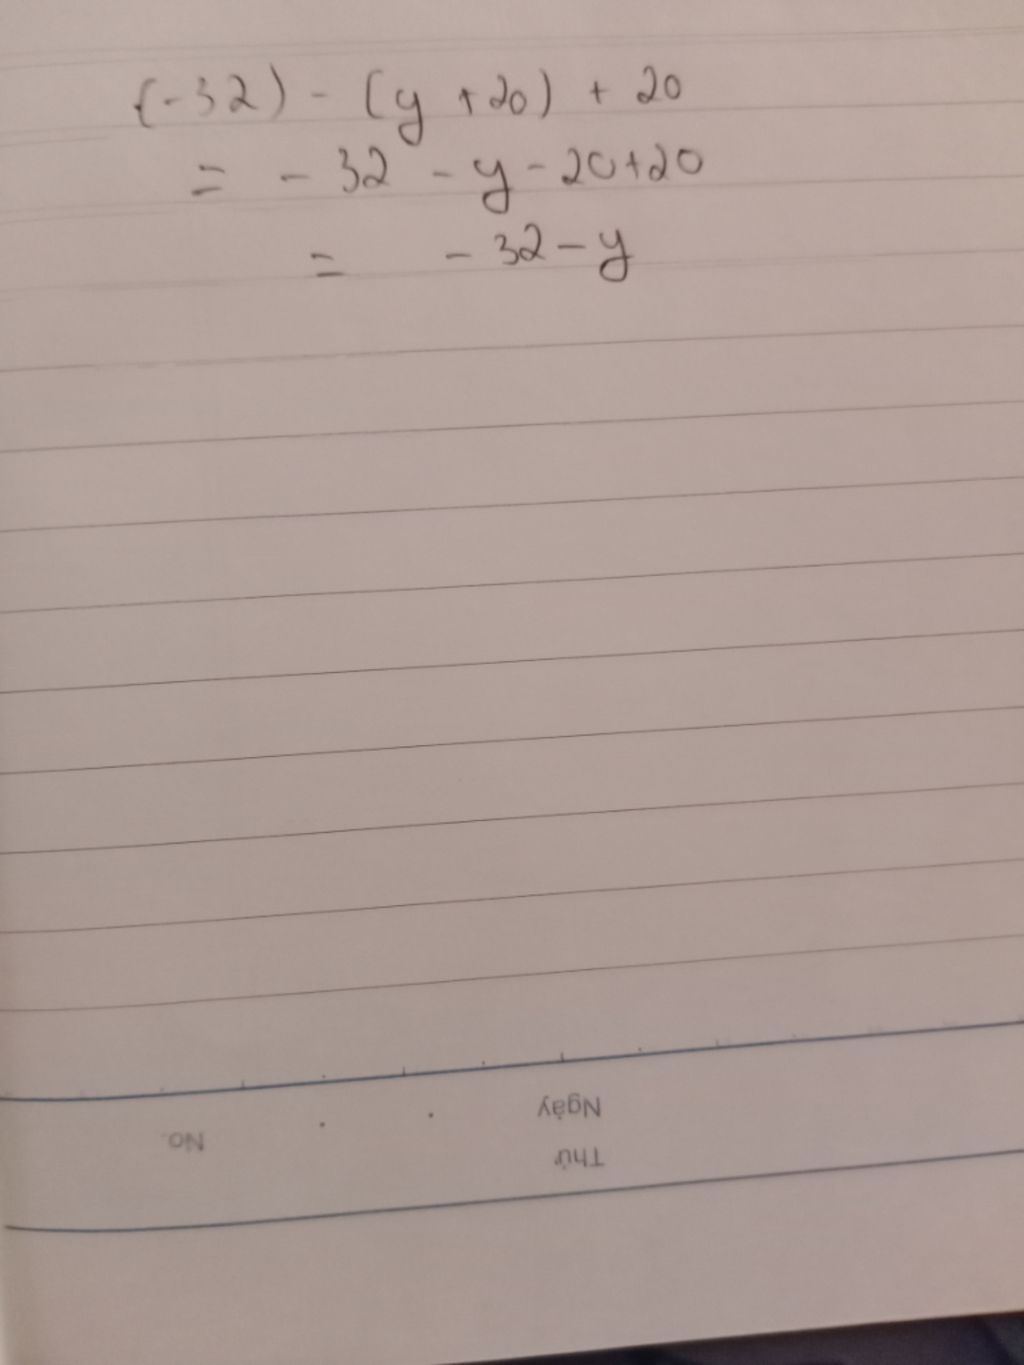 (-32) - (y + 20) + 20
= - 32 - y - 20 + 20
= - 32 - y
No.
Ngày
Thứ